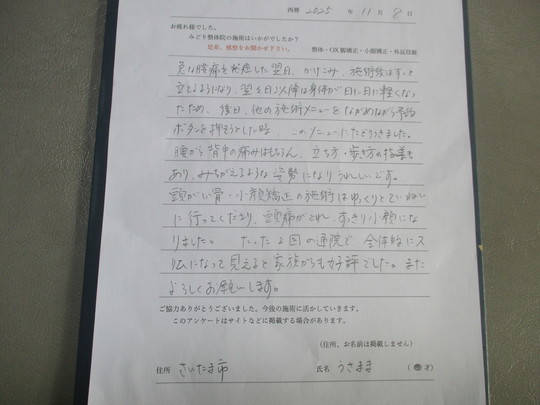 西暦 2025 年 11月 8日
お疲れ様でした。
みどり整体院の施術はいかがでしたか?
是非、感想をお聞かせ下さい。 整体・OX脚矯正・小顔矯正・外反母趾
急な腰痛を発症した翌日、かけこみ、施術後はすっと
立てるようになり、翌々日以降は身体が日に日に軽くなっ
たため、後日、他の施術メニューをながめながら予約
ボタンを押そうとした時、このメニューにたどりつきました。
腰から背中の痛みはもちろん、立ち方・歩き方の指導も
あり、みちがえるような姿勢になりうれしいです。
頭がい骨・小顔矯正の施術はゆっくりとていねい
に行ってくださり、頭痛がとれ、すっきり小顔にな
りました。 たった2回の通院で全体的にス
リムになって見えると家族からも好評でした。また
よろしくお願いします。
ご協力ありがとうございました。今後の施術に活かしていきます。
このアンケートはサイトなどに掲載する場合があります。
(住所、お名前は掲載しません)
住所 さいたま市 氏名 うさまま ( 才)